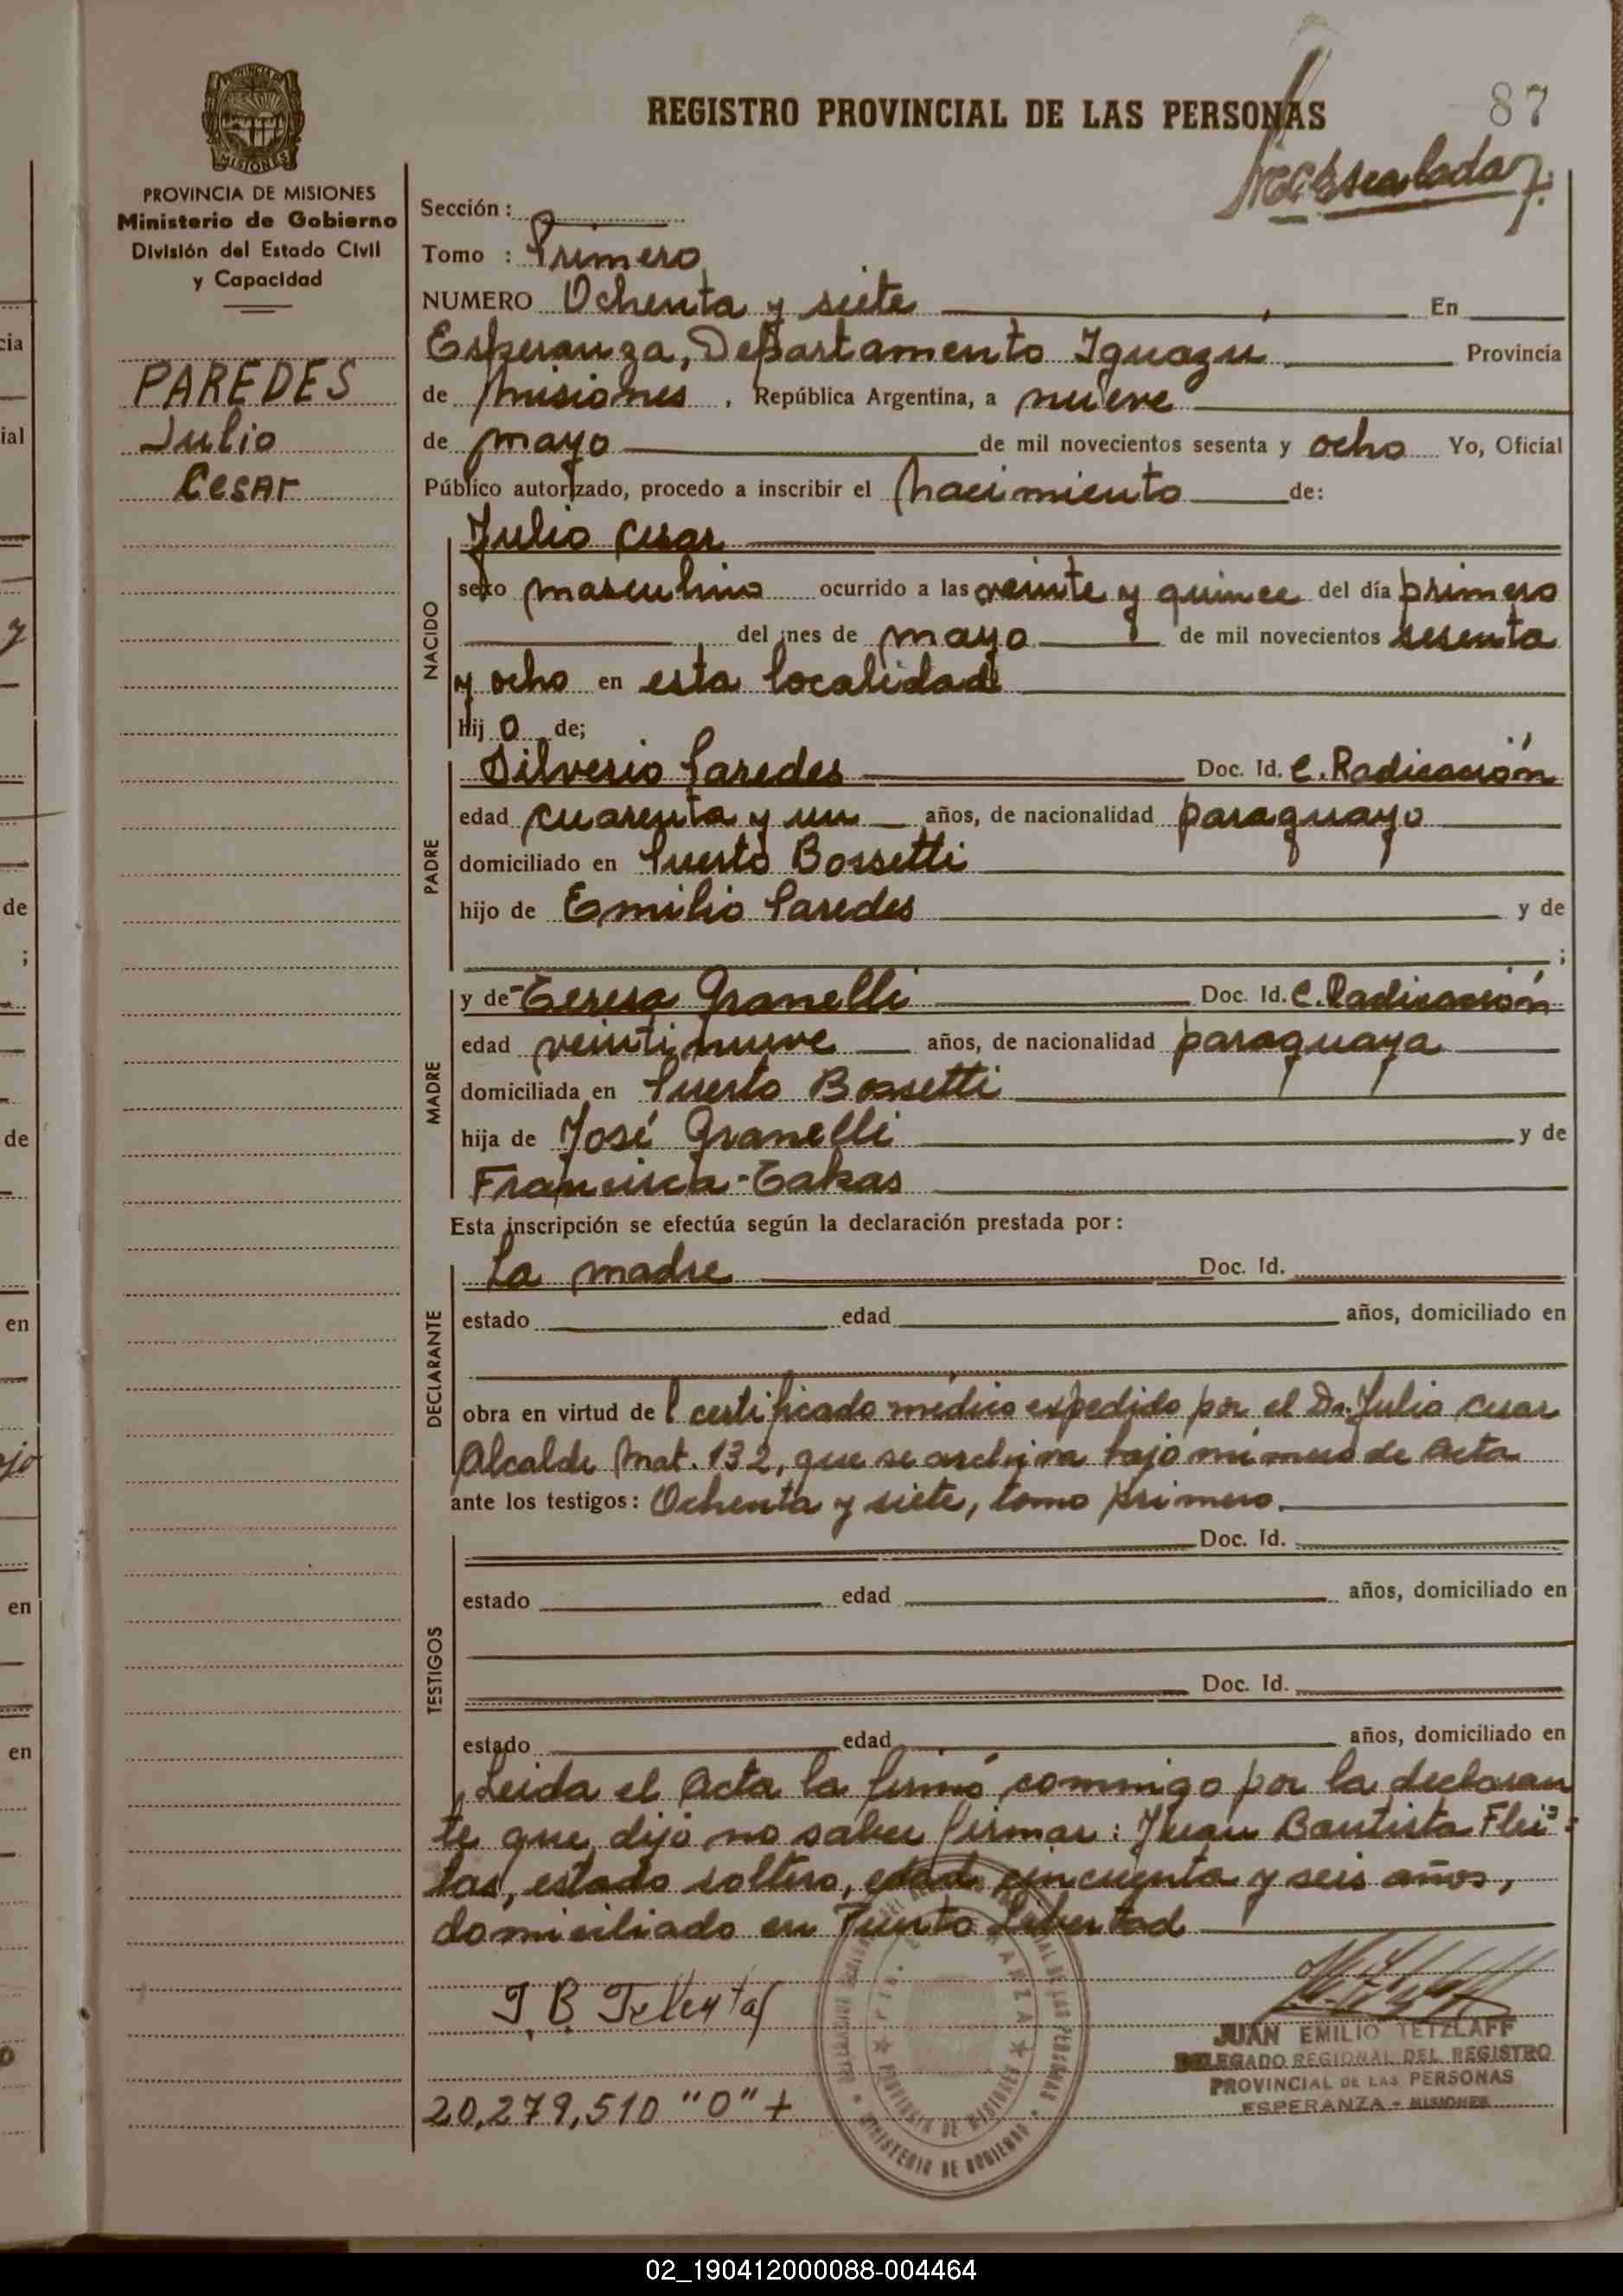 REGISTRO PROVINCIAL DE LAS PERSONAS
87
PROVINCIA DE MISIONES
Ministerio de Gobierno
División del Estado Civil
y Capacidad
PAREDES
Julio
Cesar
Sección:
Tomo : Primero
NUMERO Ochenta y siete En
Esperanza, Departamento Iguazu Provincia
de Misiones, República Argentina, a nueve
de mayo de mil novecientos sesenta y ocho Yo, Oficial
Público autorizado, procedo a inscribir el Nacimiento de:
NACIDO
Julio Cesar
sexo masculino ocurrido a las veinte y quince del día primero
del mes de mayo de mil novecientos sesenta
y ocho en esta localidad
Hijo de;
PADRE
Silverio Paredes Doc. Id. C. Radicación
edad cuarenta y un años, de nacionalidad paraguayo
domiciliado en Puerto Bossetti
hijo de Emilio Paredes y de
;
MADRE
y de Teresa Granelli Doc. Id. C. Radicación
edad veintinueve años, de nacionalidad paraguaya
domiciliada en Puerto Bossetti
hija de José Granelli y de
Francisca
Esta inscripción se efectúa según la declaración prestada por:
DECLARANTE
La madre Doc. Id.
estado edad años, domiciliado en
obra en virtud del certificado médico expedido por el Dr. Julio Cesar
Alcalde Mat. 132, que se archiva bajo número de Acta
ante los testigos: Ochenta y siete, tomo primero.
TESTIGOS
Doc. Id.
estado edad años, domiciliado en
Doc. Id.
estado edad años, domiciliado en
Leida el Acta la firmó conmigo por la declaran
te que dijo no saber firmar: Juan Bautista
estado soltero, edad cincuenta y seis años,
domiciliado en Puerto Libertad
J. B.
JUAN EMILIO TETZLAFF
DELEGADO REGIONAL DEL REGISTRO
PROVINCIAL DE LAS PERSONAS
ESPERANZA - MISIONES
20,279,510 "O" +
PROVINCIA DE MISIONES
MINISTERIO DE GOBIERNO
02_190412000088-004464